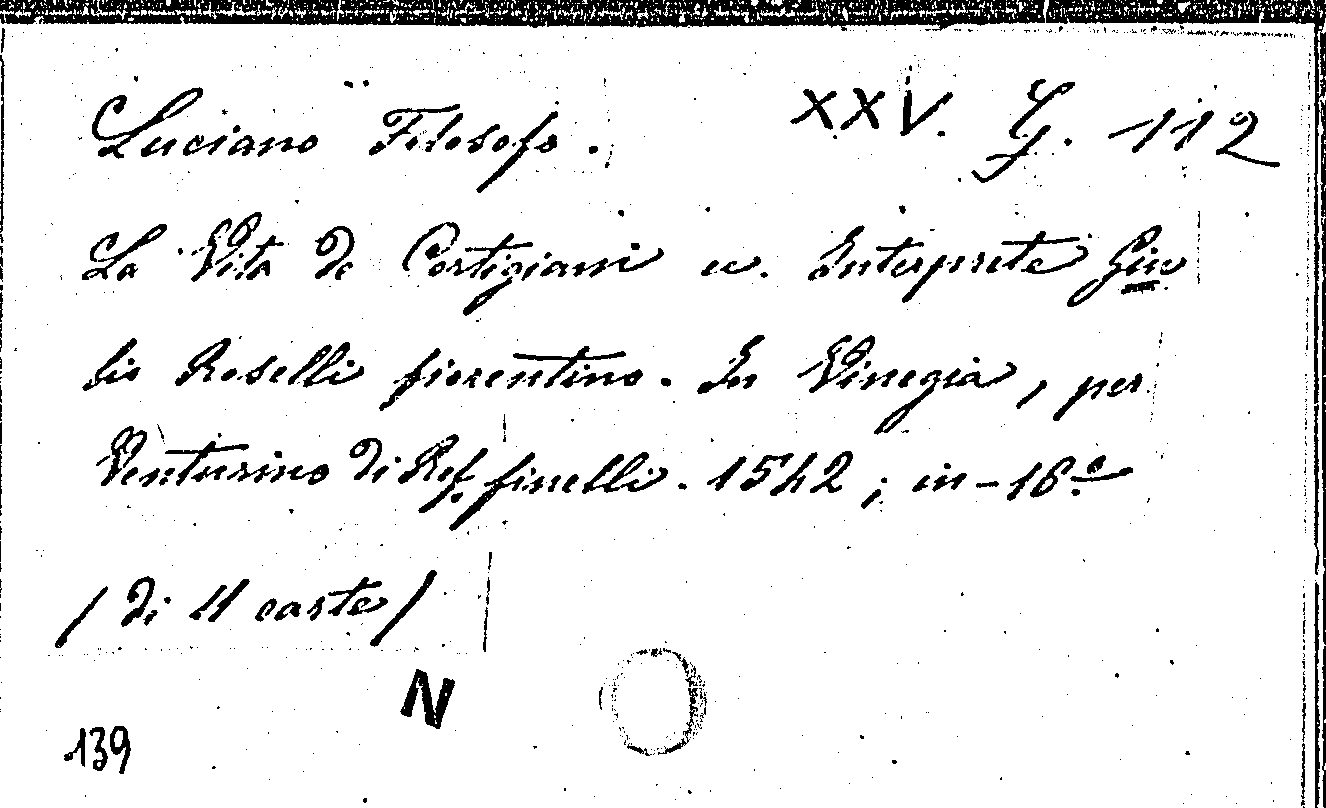 Luciano Filosofo. XXV. G. 112
La Vita de Cortigiani ec. Interprete Giu
lio Roselli fiorentino. In Vinegia, per
Venturino di Rof finelli. 1542; in-16.º
/ di 11 carte /
N
139